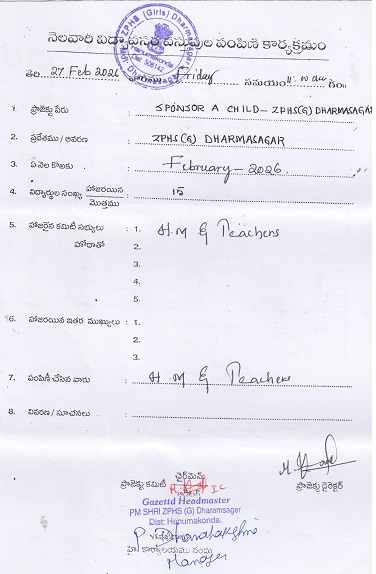 PM SHRI ZPHS (Girls) Dharmasagar
Hanumakonda
నెలవారీ విద్యా వస్తువుల పంపిణి కార్యక్రమం
తేది. 27 Feb 2026 Friday సమయం గం॥
1. ప్రాజెక్టు పేరు : SPONSOR A CHILD - ZPHS(G) DHARMASAGAR
2. ప్రదేశము / ఆవరణ : ZPHS(G) DHARMASAGAR
3. ఏ నెల కొఱకు : February - 2026.
4. విద్యార్థుల సంఖ్య హాజరయిన / మొత్తము : 15
5. హాజరైన కమిటీ సభ్యులు : 1. H.M & Teachers
హోదాతో 2.
3.
4.
5.
6. హాజరయిన ఇతర ముఖ్యులు : 1.
2.
3.
7. పంపిణీ చేసిన వారు : H M & Teachers
8. వివరణ / సూచనలు :
ప్రాజెక్టు కమిటీ ఛైర్మెన్ ప్రాజెక్టు డైరెక్టర్
Gazettd Headmaster
PM SHRI ZPHS (G) Dharamsager
Dist: Hanumakonda.
P. Dhanalakshmi
హైకార్యాలయము నందు
Manager